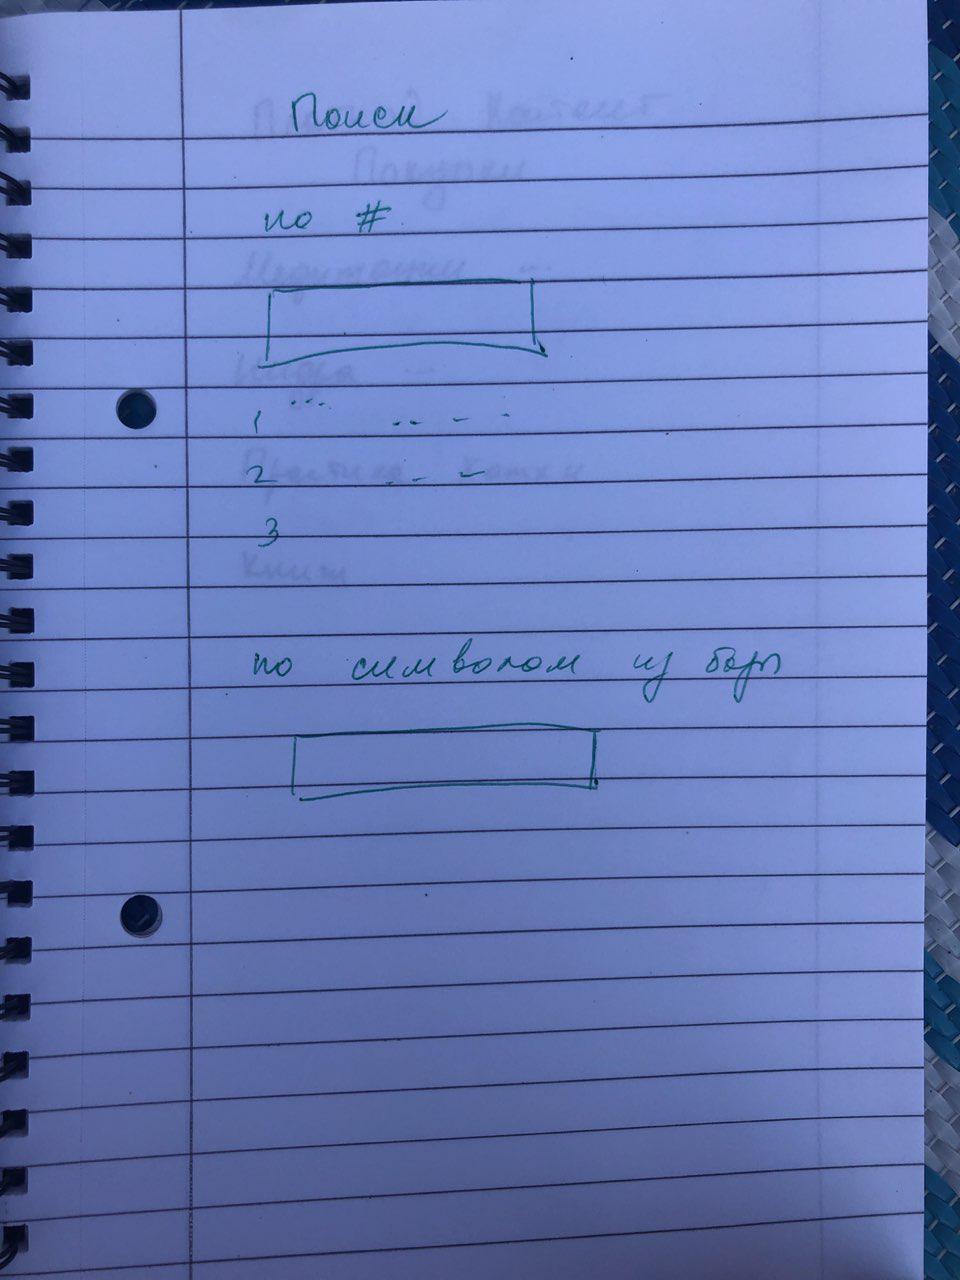 Поиск
по #
1 ... .. - -
2 .. -
3
по символам из базы